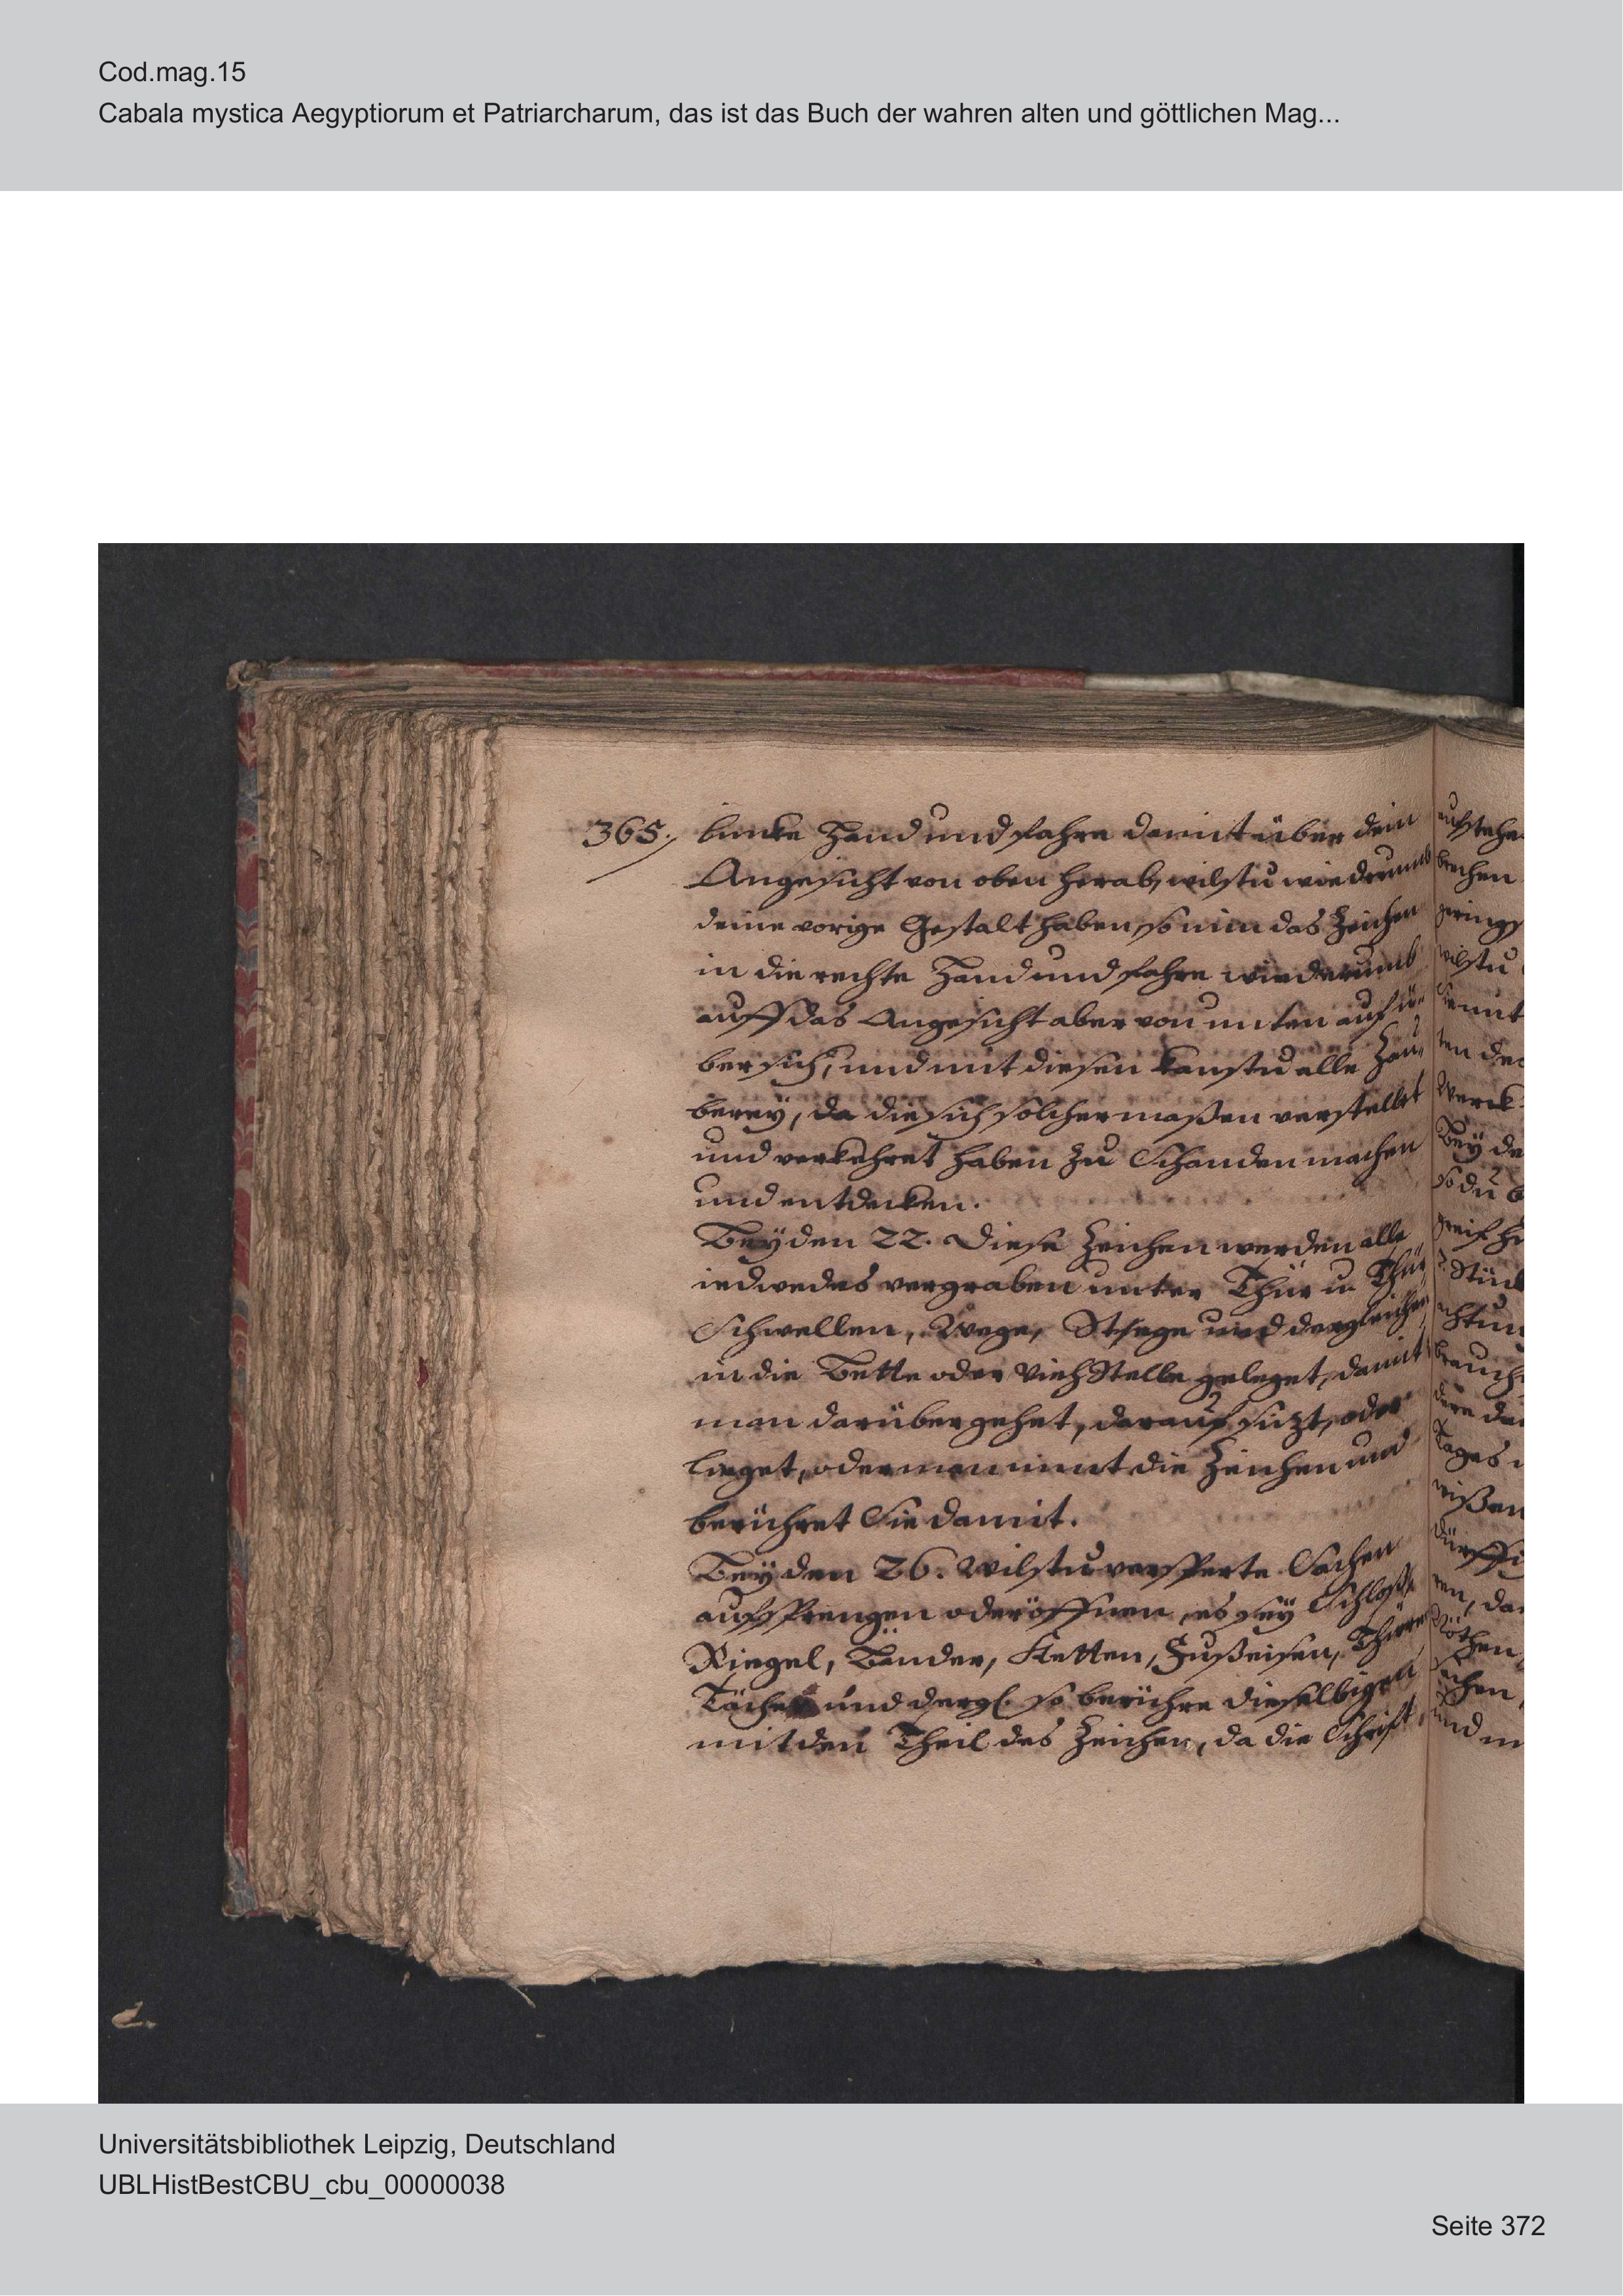 Cod.mag.15
Cabala mystica Aegyptiorum et Patriarcharum, das ist das Buch der wahren alten und göttlichen Mag...
365. lincke Hand und fahre damit über dein
Angesicht von oben herab, wilstu wiedrumb
deine vorige Gestalt haben, so nim das Zeichen
in die rechte Hand und fahre wiederumb
auff das Angesicht aber von unten auf ü-
ber sich, und mit diesen kanstu alle Zau-
berey, da die sich solcher maßen verstellet
und verkehret haben zu Schanden machen
und entdecken.
Bey den 22. Diese Zeichen werden alle
iedwedes vergraben unter Thür u. Thür
Schwellen, Wege, Stege und dergleichen
in die Bette oder Vieh Stelle geleget, damit
man darüber gehet, darauf sizt, oder
lieget, oder man nimt die Zeichen und
berühret Sie damit.
Bey den 26. Wilstu versperte Sachen
aufsprengen oder öffnen, es sey Schloße
Riegel, Bänder, Ketten, Fußeisen, Thüren
und dergl. so berühre dieselbigen
mit den Theil des Zeichen, da die Schrift
Universitätsbibliothek Leipzig, Deutschland
UBLHistBestCBU_cbu_00000038
Seite 372